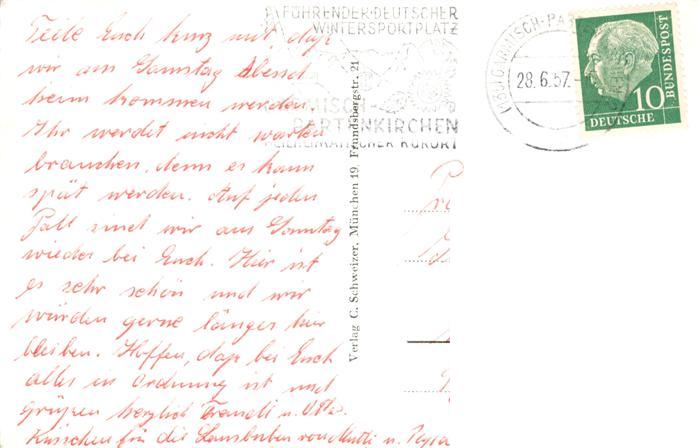 Teile Euch kurz mit, daß
wir am Samstag Abend
heim kommen werden.
Ihr werdet nicht warten
brauchen, denn es kann
spät werden. Auf jeden
Fall sind wir am Sonntag
wieder bei Euch. Hier ist
es sehr schön und wir
würden gerne länger hier
bleiben. Hoffen, daß bei Euch
alles in Ordnung ist und
grüßen herzlich u.
Küsschen für die Lausbuben von Mutti u.
FÜHRENDER DEUTSCHER
WINTERSPORTPLATZ
MISCH-
PARTENKIRCHEN
HEILKLIMATISCHER KURORT
Verlag C. Schweizer, München 19, Frundsbergstr. 21
GARMISCH-PA
28.6.57.-
10
DEUTSCHE
BUNDESPOST